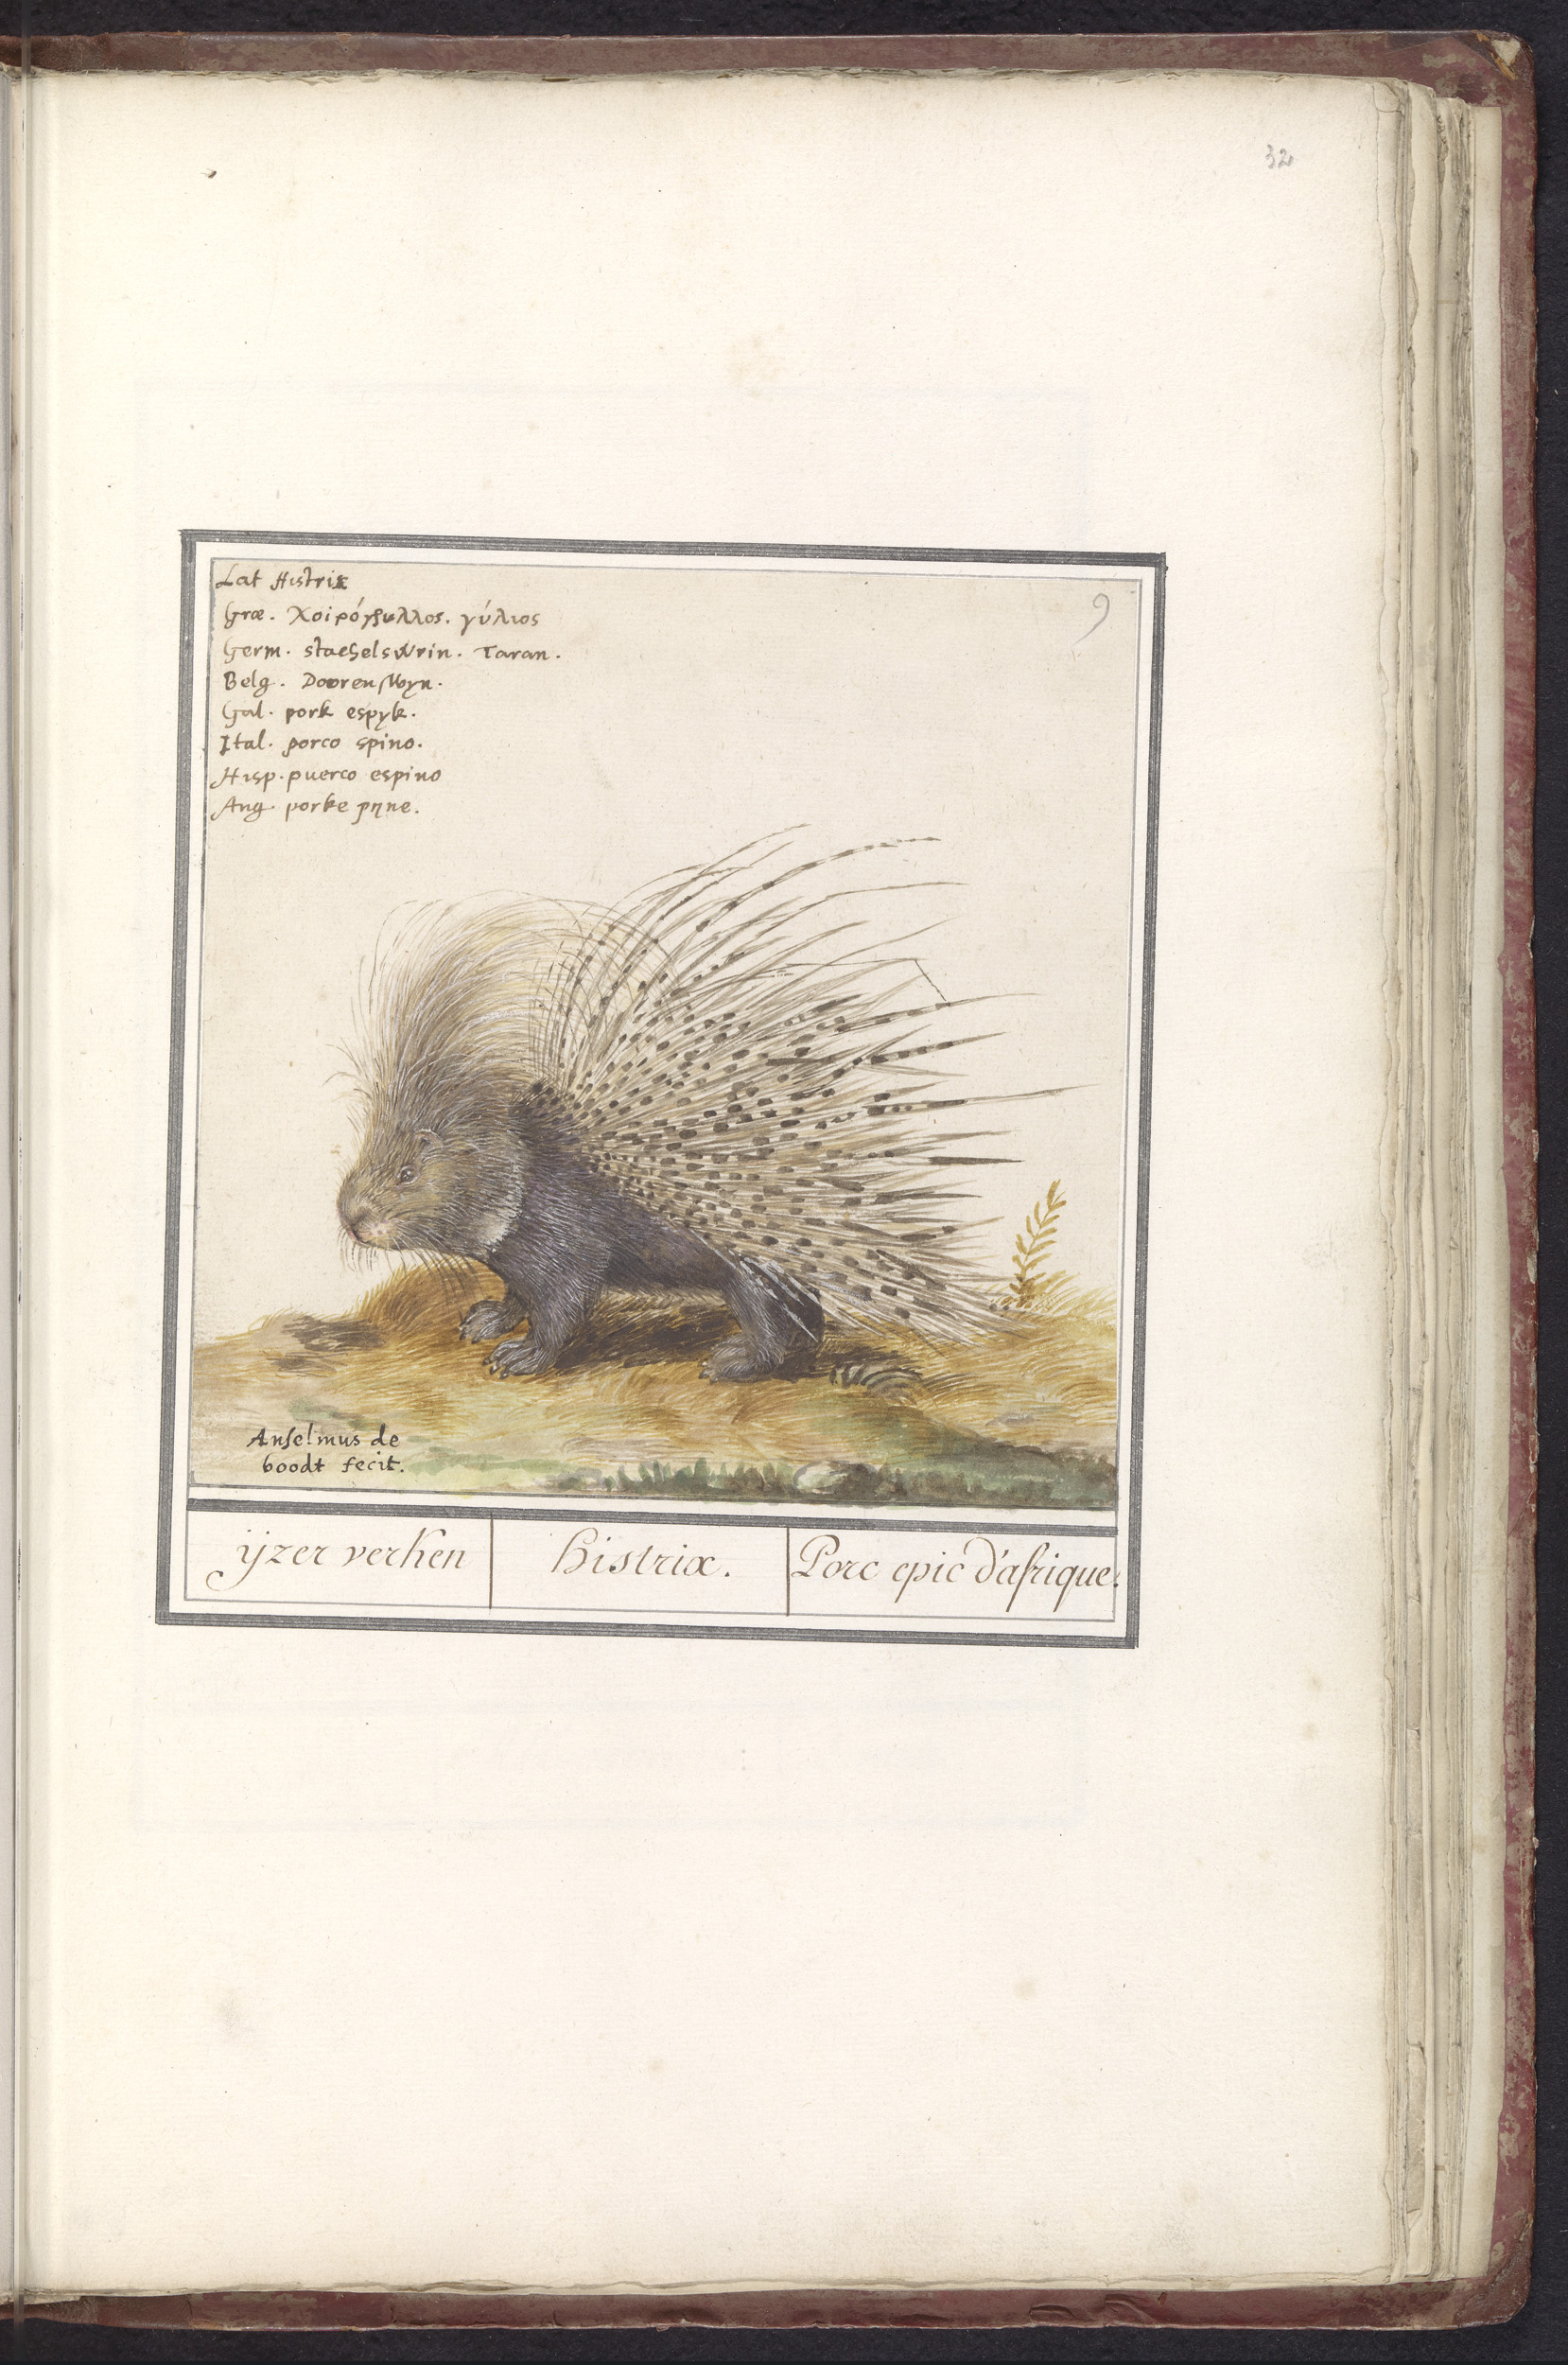 32
9
Lat Histrix
Græ. Χοιρόγρυλλος. γύλιος
Germ. stachelswrin. Taran.
Belg. Doorenswyn.
Gal. pork espyk.
Ital. porco spino.
Hisp. puerco espino
Ang. porke pyne.
Anselmus de
boodt fecit.
ijzer verken
histrix.
Porc epic d'afrique.